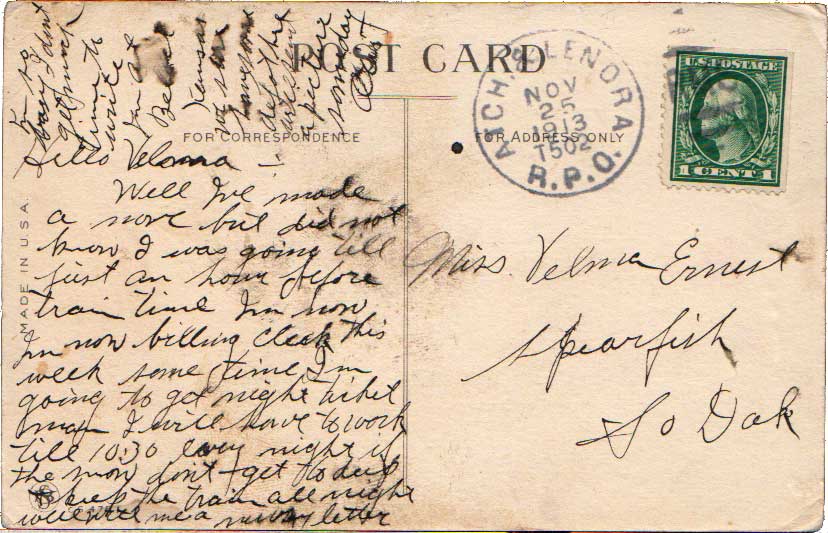 POST CARD
FOR CORRESPONDENCE
FOR ADDRESS ONLY
MADE IN U.S.A.
ATCH. & LENORA
NOV
25
1913
T502
R.P.O.
U.S. POSTAGE
1 CENT 1
Hello Velma —
Well I've made
a move but did not
know I was going till
just an hour before
train time Im now
Im now billing clerk this
week some time I'm
going to get night ticket
man I will have to work
till 10:30 every night if
the moon don't get to
the train all night
well write me a letter
I'm so
busy I don't
get much
time to
write
Im at
Kansas
some
a picture
someday
Miss. Velma Ernest
Spearfish
So Dak